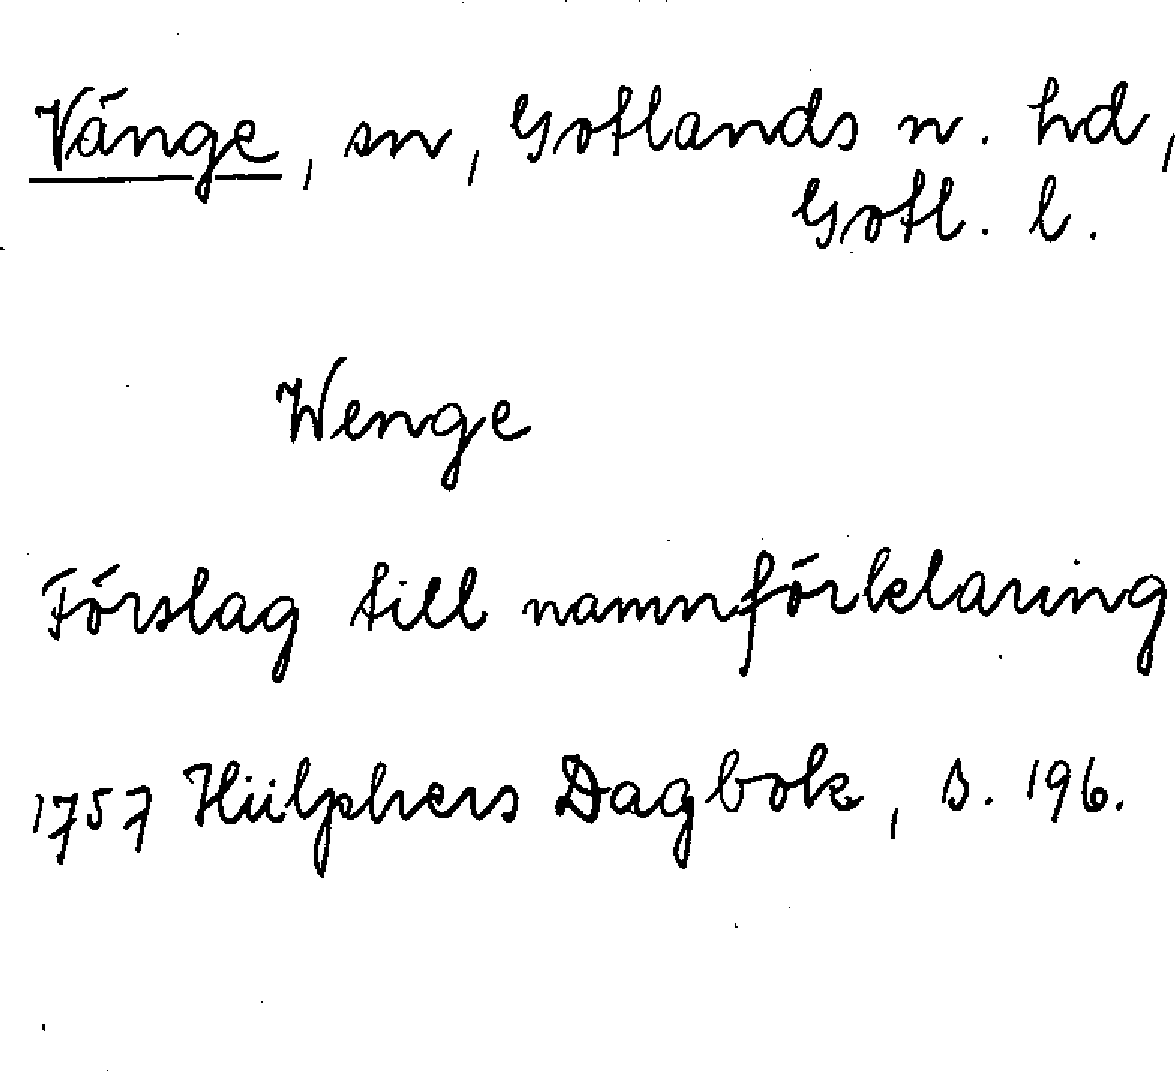 Vänge, sn, Gotlands n. hd,
Gotl. l.
Wenge
Förslag till namnförklaring
1757 Hülphers Dagbok, s. 196.